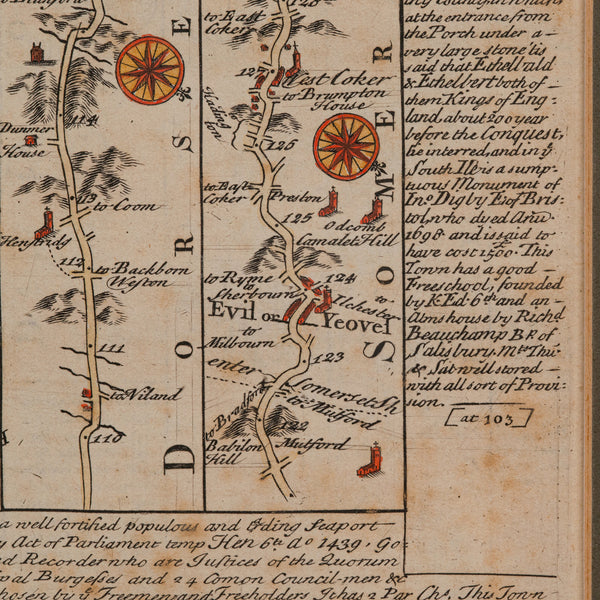 114
Dummer
House
113
to Coom
Henstridg
112
to Backborn
Weston
111
to Niland
110
D O R S E
to East
Coker
127
West Coker
to Brumpton
House
Harding
ton
125
to East
Coker
Preston
125
Odcomb
Camalet Hill
to Ryme
to
Sherbourn
124
to
Ilchester
Evil or Yeovel
to
Milbourn
123
enter
Somerset Sh
to Mutford
to Bradford
122
Babilon
Hill
Mutford
S O M E R
at the entrance from
the Porch under a
very large stone 'tis
said that Ethelbald
& Ethelbert both of
them Kings of Eng-
land, about 200 year
before the Conquest,
lie interred, and in yᵉ
South Ile is a sump-
tuous Monument of
Jnᵒ Digby E. of Bris-
tol, who dyed Anᵒ
1698 and is said to
have cost 1500ˡ. This
Town has a good
Freeschool, founded
by K. Ed 6ᵗʰ and an
Almshouse by Richᵈ
Beauchamp Bᵖ of
Salisbury. Mᵗˢ Thu
& Sat well stored
with all sort of Provi-
sion.
at 103
a well fortified populous and trding seaport
y Act of Parliament temp. Hen 6ᵗʰ Aᵒ 1439. Go-
d Recorder who are Justices of the Quorum
ipal Burgeſses and 24 Comon Council-men &
chosen by yᵉ Freemen and Freeholders It has 2 Par Chs. This Town